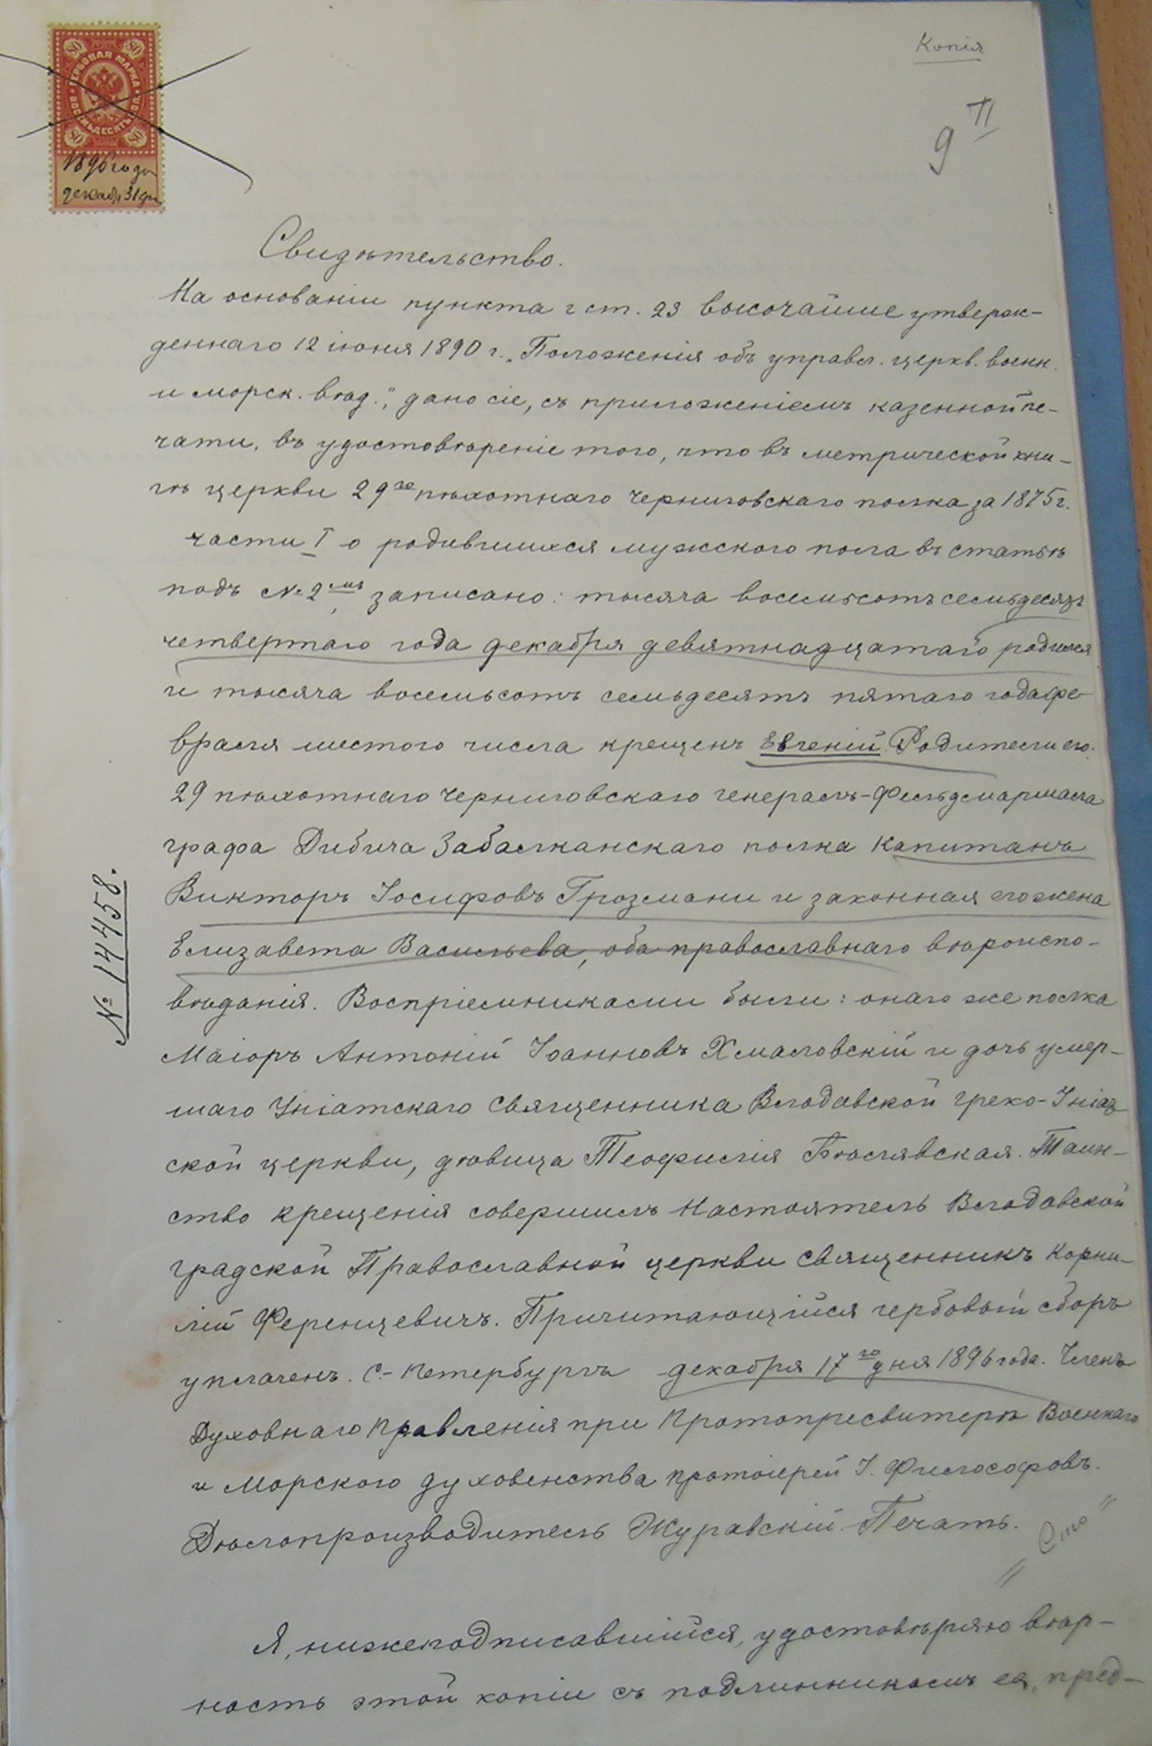 Копія
9
ГЕРБОВАЯ МАРКА
ВОСЕМЬДЕСЯТЪ КОП.
80 80
80 80
1896 года
декабр 31 дня
Свидѣтельство.
На основаніи пункта г ст. 23 Высочайше утверж-
деннаго 12 іюня 1890 г. „Положенія объ управл. церкв. воен.
и морск. вѣд.", дано сіе, съ приложеніемъ казенной пе-
чати, въ удостовѣреніе того, что въ метрической кни-
гѣ церкви 29го пѣхотнаго Черниговскаго полка за 1875 г.
части I о родившихся мужского пола въ статьѣ
подъ № 2мъ, записано: тысяча восемьсотъ семьдесятъ
четвертаго года декабря девятнадцатаго родился
и тысяча восемьсотъ семьдесятъ пятаго года фе-
враля шестого числа крещенъ Евгеній. Родители его:
29 пѣхотнаго Черниговскаго генералъ-Фельдмаршала
графа Дибича Забалканскаго полка Капитанъ
Викторъ Іосифовъ Грозмани и законная его жена
Елизавета Васильева, оба православнаго вѣроиспо-
вѣданія. Воспріемниками были: онаго же полка
Маіоръ Антоній Іоанновъ Хмаловскій и дочь умер-
шаго Уніатскаго Священника Влодавской греко-Уніат
ской церкви, дѣвица Теофилія Бѣлявская. Таин-
ство крещенія совершилъ Настоятель Влодавской
градской Православной церкви Священникъ Корни-
лій Ференцевичъ. Причитающійся гербовый сборъ
уплаченъ. С.-Петербургъ декабря 17го дня 1896 года. Членъ
Духовнаго Правленія при Протопресвитерѣ Военнаго
и Морского духовенства протоіерей І. Философовъ.
Дѣлопроизводитель Журавскій. Печать.
№ 14458.
Я, нижеподписавшійся, удостовѣряю вѣр-
ность этой копіи съ подлинникомъ ея, пред-